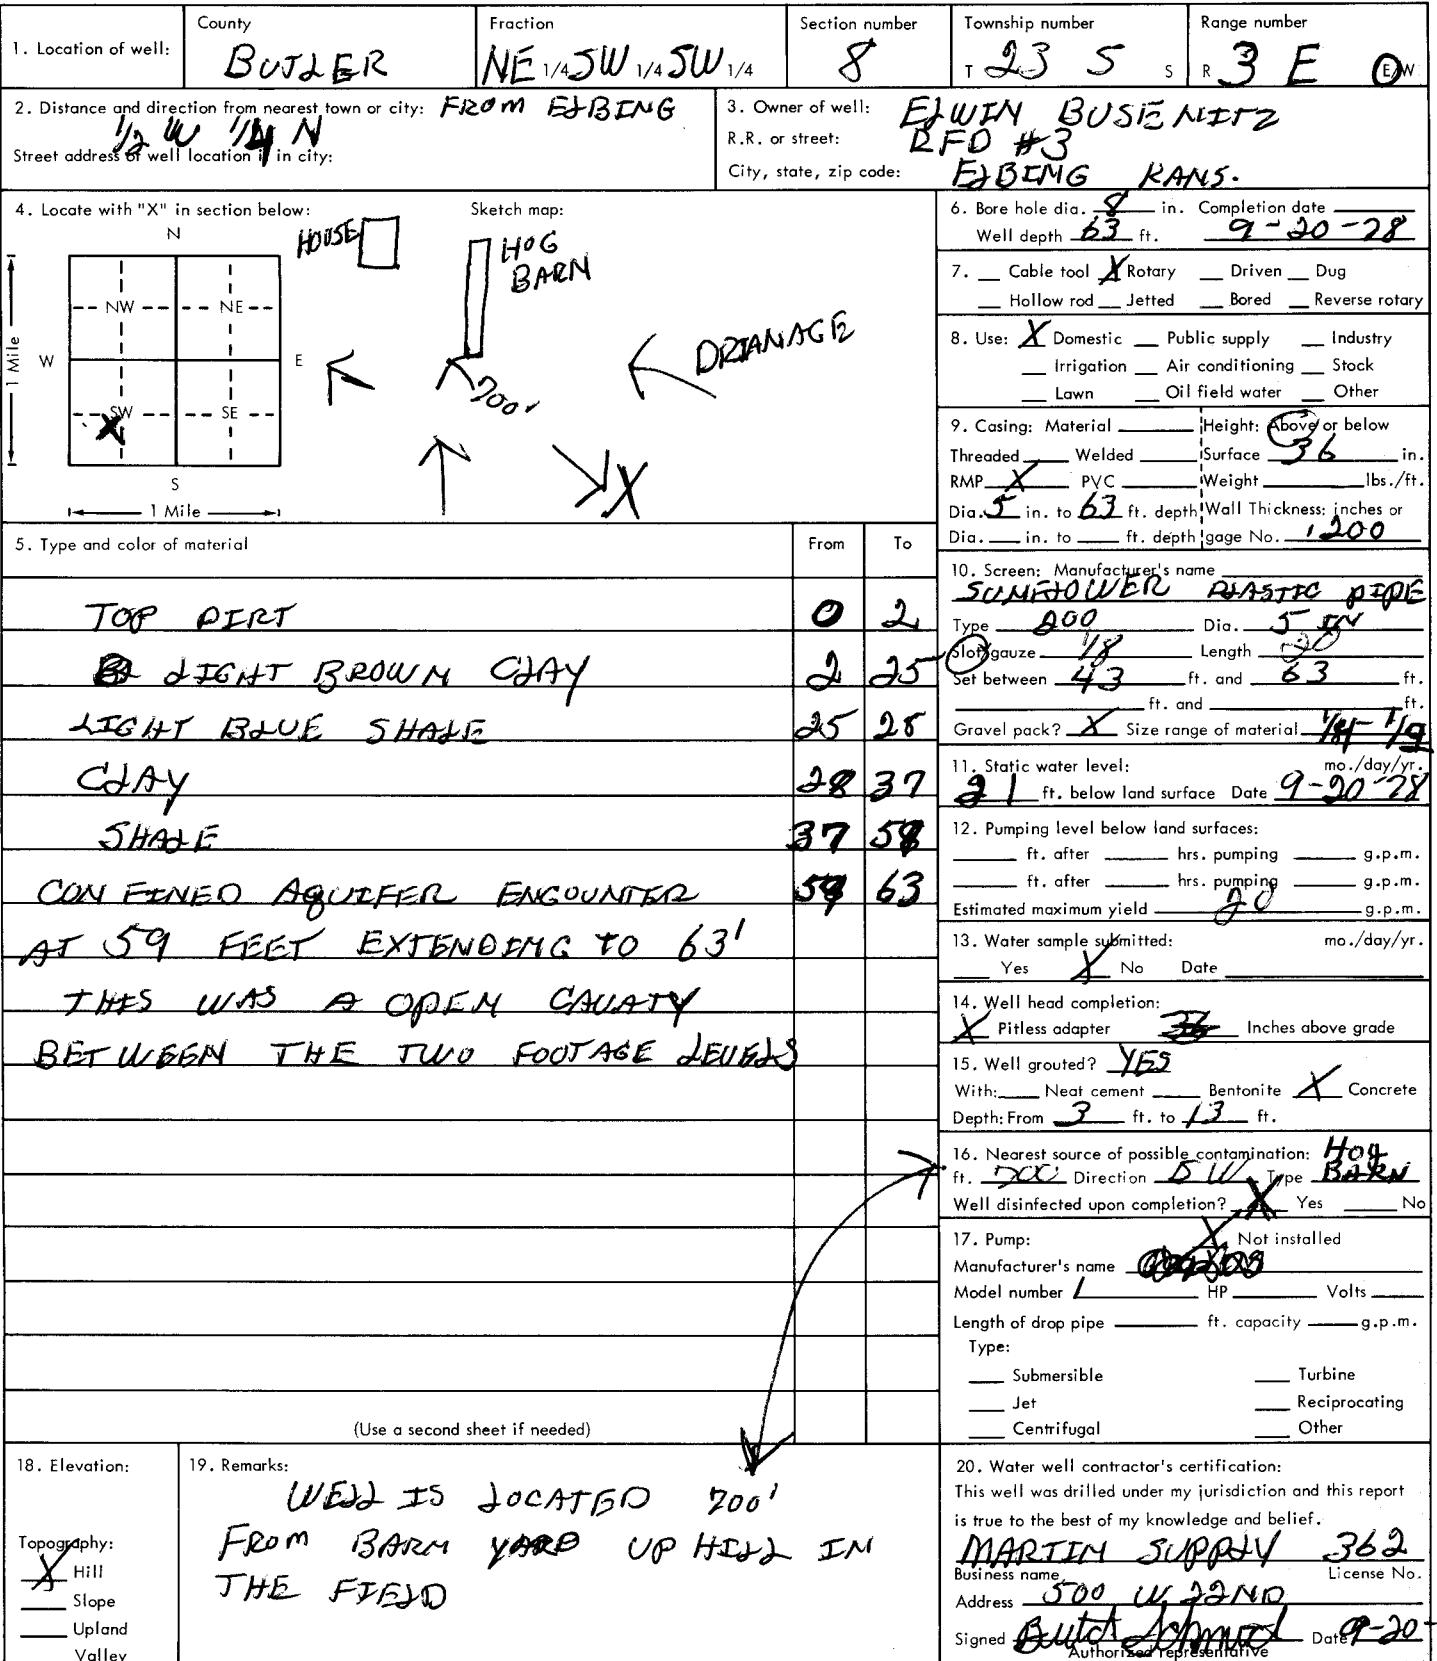 1. Location of well:
County
BUTLER
Fraction
NE 1/4 SW 1/4 SW 1/4
Section number
8
Township number
T 23 S S
Range number
R 3 E E/W
2. Distance and direction from nearest town or city: FROM ELBING
1/2 W 1/4 N
Street address of well location if in city:
3. Owner of well: ELWIN BUSENITZ
R.R. or street: RFD #3
City, state, zip code: ELBING KANS.
4. Locate with "X" in section below:
N
NW NE
W E
SW SE
X
S
1 Mile
1 Mile
Sketch map:
HOUSE
HOG
BARN
DRIANAGE
700'
X
5. Type and color of material From To
TOP DIRT 0 2
LIGHT BROWN CLAY 2 25
LIGHT BLUE SHALE 25 28
CLAY 28 37
SHALE 37 59
CONFINED AQUIFER ENCOUNTER 59 63
AT 59 FEET EXTENDING TO 63'
THIS WAS A OPEN CAVATY
BETWEEN THE TWO FOOTAGE LEVELS
(Use a second sheet if needed)
6. Bore hole dia. 8 in. Completion date
Well depth 63 ft. 9-20-78
7. Cable tool X Rotary Driven Dug
Hollow rod Jetted Bored Reverse rotary
8. Use: X Domestic Public supply Industry
Irrigation Air conditioning Stock
Lawn Oil field water Other
9. Casing: Material Height: Above or below
Threaded Welded Surface 36 in.
RMP X PVC Weight lbs./ft.
Dia. 5 in. to 63 ft. depth Wall Thickness: inches or
Dia. in. to ft. depth gage No. .200
10. Screen: Manufacturer's name
SUNFLOWER PLASTIC PIPE
Type 200 Dia. 5 IN
Slot/gauze 1/8 Length 20
Set between 43 ft. and 63 ft.
ft. and ft.
Gravel pack? X Size range of material
11. Static water level: mo./day/yr.
21 ft. below land surface Date 9-20-78
12. Pumping level below land surfaces:
ft. after hrs. pumping g.p.m.
ft. after hrs. pumping g.p.m.
Estimated maximum yield 20 g.p.m.
13. Water sample submitted: mo./day/yr.
Yes X No Date
14. Well head completion:
X Pitless adapter Inches above grade
15. Well grouted? YES
With: Neat cement Bentonite X Concrete
Depth: From 3 ft. to 13 ft.
16. Nearest source of possible contamination: HOG
ft. 700 Direction SW Type BARN
Well disinfected upon completion? X Yes No
17. Pump: X Not installed
Manufacturer's name
Model number HP Volts
Length of drop pipe ft. capacity g.p.m.
Type:
Submersible Turbine
Jet Reciprocating
Centrifugal Other
18. Elevation:
Topography:
X Hill
Slope
Upland
Valley
19. Remarks:
WELL IS LOCATED 700'
FROM BARN YARD UP HILL IN
THE FIELD
20. Water well contractor's certification:
This well was drilled under my jurisdiction and this report
is true to the best of my knowledge and belief.
MARTIN SUPPLY 362
Business name License No.
Address 500 W 22ND
Signed Butch Schmid Date 9-20-
Authorized representative